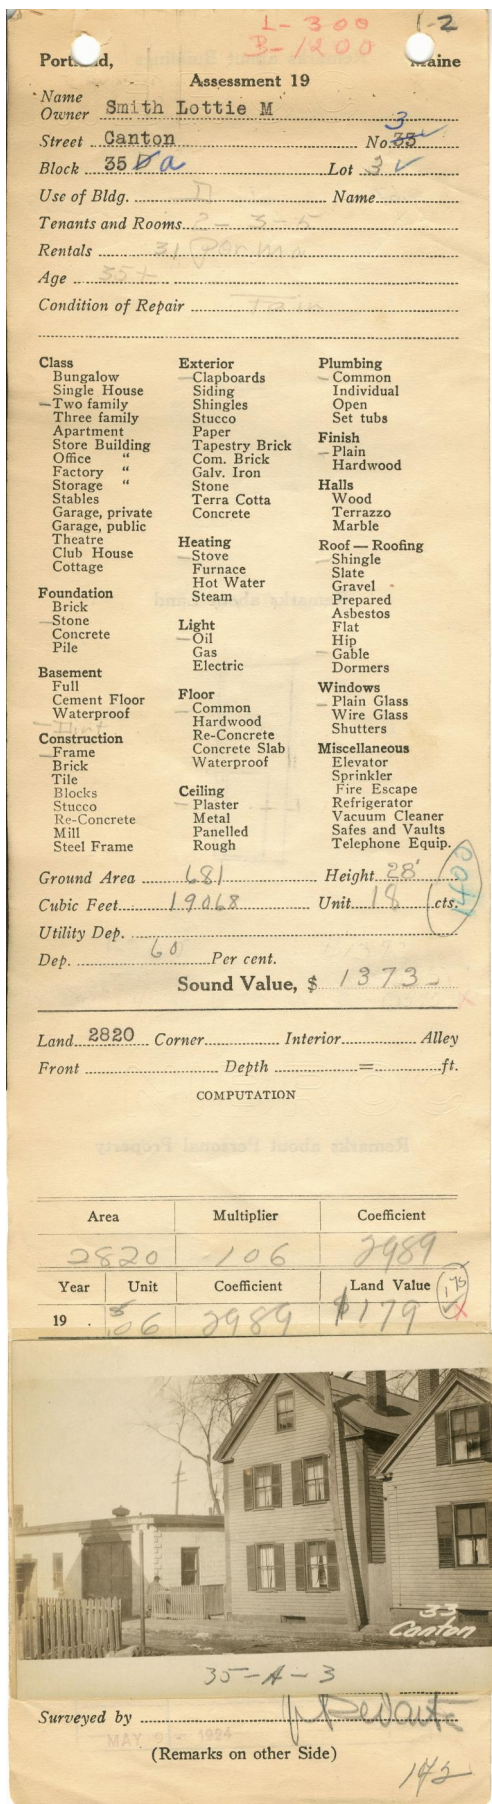 L- 300 1-2
B- 1200
Portland, Maine
Assessment 19
Name
Owner Smith Lottie M
3
Street Canton No. 33
Block 35 a Lot 3
Use of Bldg. Name
Tenants and Rooms 2- 3-5
Rentals 31 Per mo
Age 35+
Condition of Repair Fair
Class
Bungalow
Single House
Two family
Three family
Apartment
Store Building
Office "
Factory "
Storage "
Stables
Garage, private
Garage, public
Theatre
Club House
Cottage
Foundation
Brick
Stone
Concrete
Pile
Basement
Full
Cement Floor
Waterproof
Dirt
Construction
Frame
Brick
Tile
Blocks
Stucco
Re-Concrete
Mill
Steel Frame
Exterior
Clapboards
Siding
Shingles
Stucco
Paper
Tapestry Brick
Com. Brick
Galv. Iron
Stone
Terra Cotta
Concrete
Heating
Stove
Furnace
Hot Water
Steam
Light
Oil
Gas
Electric
Floor
Common
Hardwood
Re-Concrete
Concrete Slab
Waterproof
Ceiling
Plaster
Metal
Panelled
Rough
Plumbing
Common
Individual
Open
Set tubs
Finish
Plain
Hardwood
Halls
Wood
Terrazzo
Marble
Roof — Roofing
Shingle
Slate
Gravel
Prepared
Asbestos
Flat
Hip
Gable
Dormers
Windows
Plain Glass
Wire Glass
Shutters
Miscellaneous
Elevator
Sprinkler
Fire Escape
Refrigerator
Vacuum Cleaner
Safes and Vaults
Telephone Equip.
Ground Area 681 Height 28'
Cubic Feet 19068 Unit 18 cts.
Utility Dep.
Dep. 60 Per cent.
Sound Value, $ 1373
Land 2820 Corner Interior Alley
Front Depth = ft.
COMPUTATION
Area Multiplier Coefficient
2820 106 2989
Year Unit Coefficient Land Value 175
19 . 06 2989 $179
33
Canton
35-A-3
Surveyed by
MAY 1924
(Remarks on other Side)